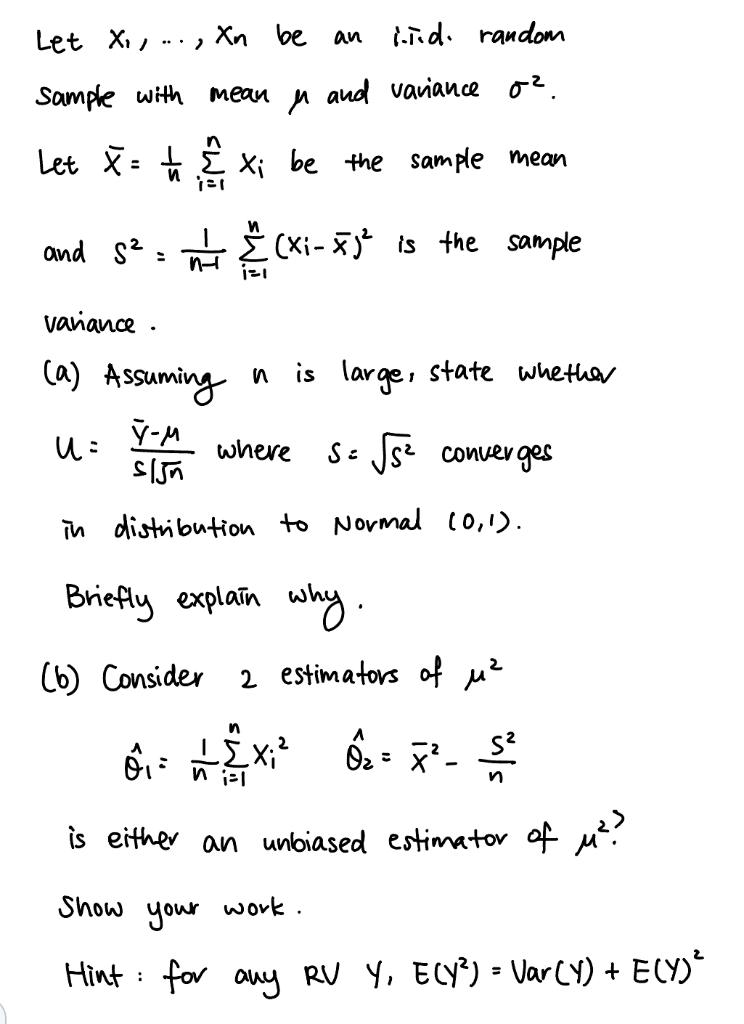 Let X₁, ..., Xn be an i.i.d. random
Sample with mean μ and variance σ².
Let X̄ = 1/n Σᵢ₌₁ⁿ Xi be the sample mean
and S² = 1/(n-1) Σᵢ₌₁ⁿ (Xi - X̄)² is the sample
variance.
(a) Assuming n is large, state whether
U = (Ȳ-μ)/(S/√n) where S = √S² converges
in distribution to Normal (0,1).
Briefly explain why.
(b) Consider 2 estimators of μ²
θ̂₁ = 1/n Σᵢ₌₁ⁿ Xi² θ̂₂ = X̄² - S²/n
is either an unbiased estimator of μ²?
Show your work.
Hint : for any RV Y, E(Y²) = Var(Y) + E(Y)²